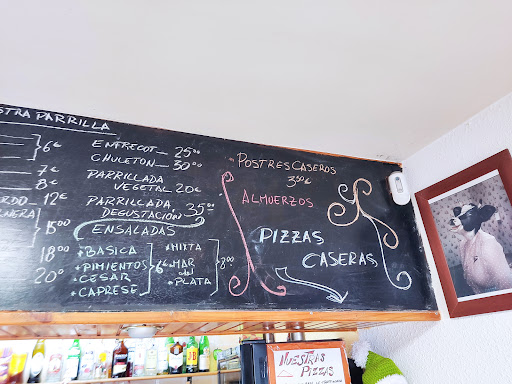 STRA PARRILLA
6€
7€
8€
RDO 12€
15'00
18'00
20'
ENTRECOT 25'00
CHULETON 30'00
PARRILLADA
VEGETAL 20€
PARRILLADA
DEGUSTACION 35'00
ENSALADAS
BASICA
PIMIENTOS
CESAR
CAPRESE
6€
MIXTA
MAR
del
PLATA
8'00
POSTRES CASEROS
3'50€
ALMUERZOS
PIZZAS
CASERAS
NUESTRAS
PIZZAS